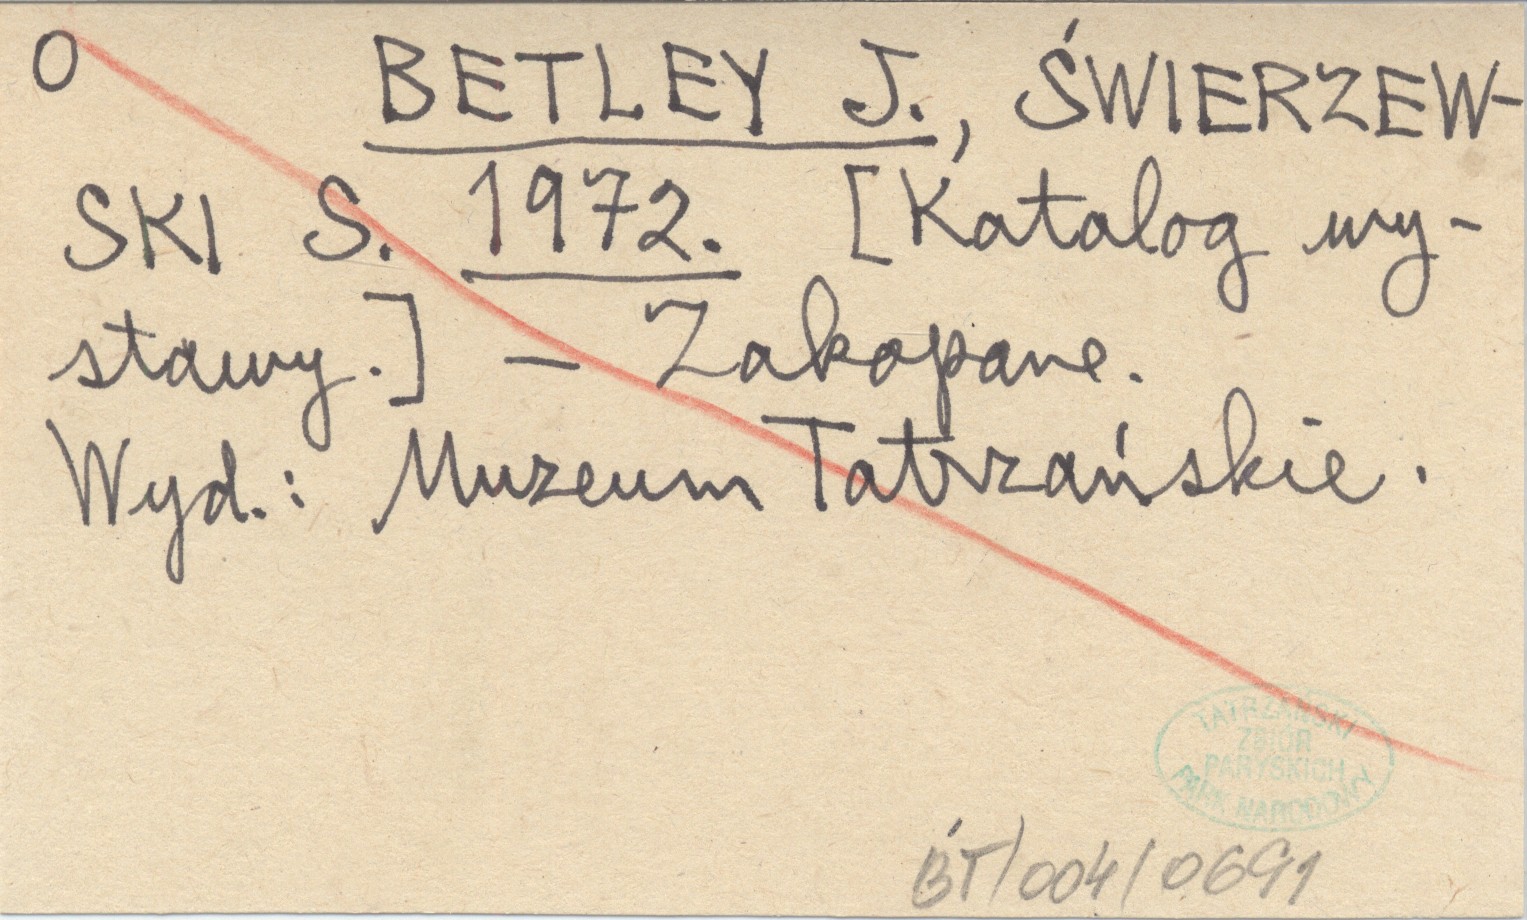 O BETLEY J., ŚWIERZEW-
SKI S. 1972. [Katalog wy-
stawy.] — Zakopane.
Wyd.: Muzeum Tatrzańskie.
TATRZAŃSKI
ZBIÓR
PARYSKICH
PARK NARODOWY
BT/004/0691